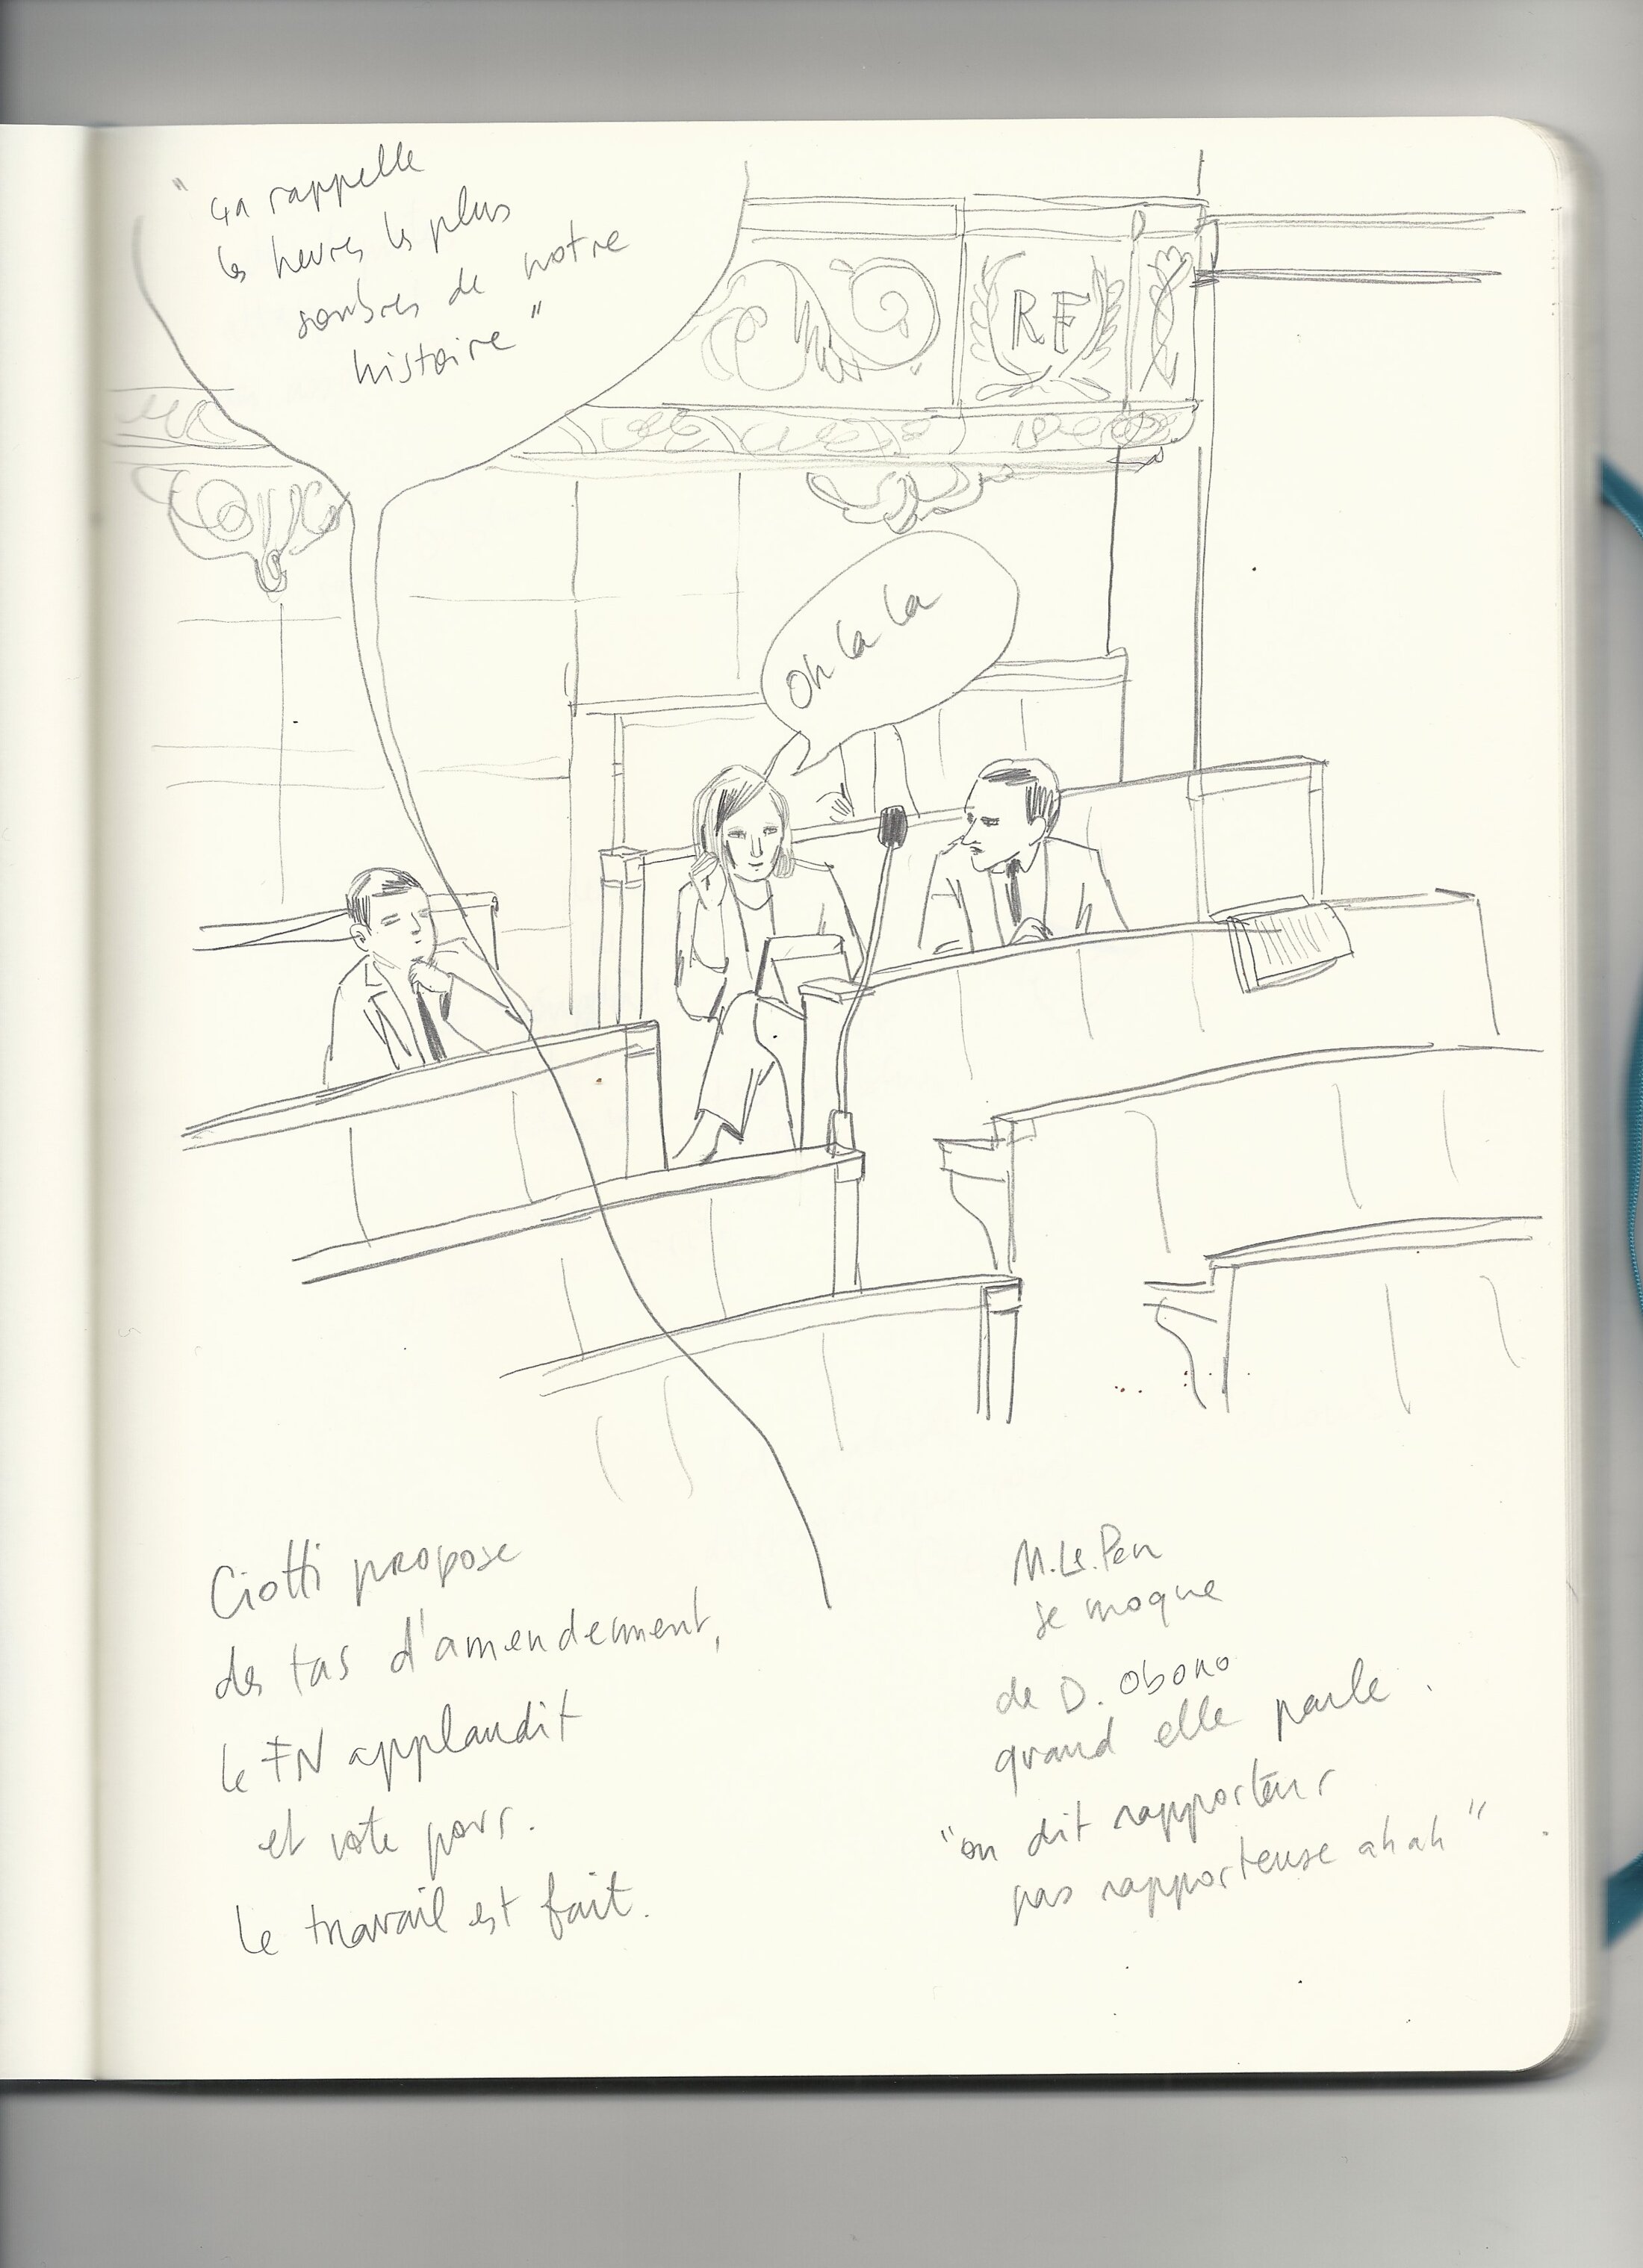 "ça rappelle
les heures les plus
sombres de notre
histoire"
RF
Oh la la
Ciotti propose
des tas d'amendement,
le FN applaudit
et vote pour.
Le travail est fait.
M. Le Pen
se moque
de D. Obono
quand elle parle.
"on dit rapporteur
pas rapporteuse ah ah"